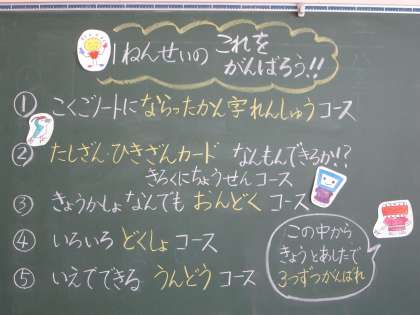 1ねんせいの これを
がんばろう!!
① こくごノートにならったかん字れんしゅうコース
② たしざん・ひきざんカード なんもんできるか!?
きろくにちょうせんコース
③ きょうかしょなんでも おんどく コース
④ いろいろ どくしょ コース
⑤ いえでできる うんどう コース
この中から
きょうとあしたで
3つずつがんばれ